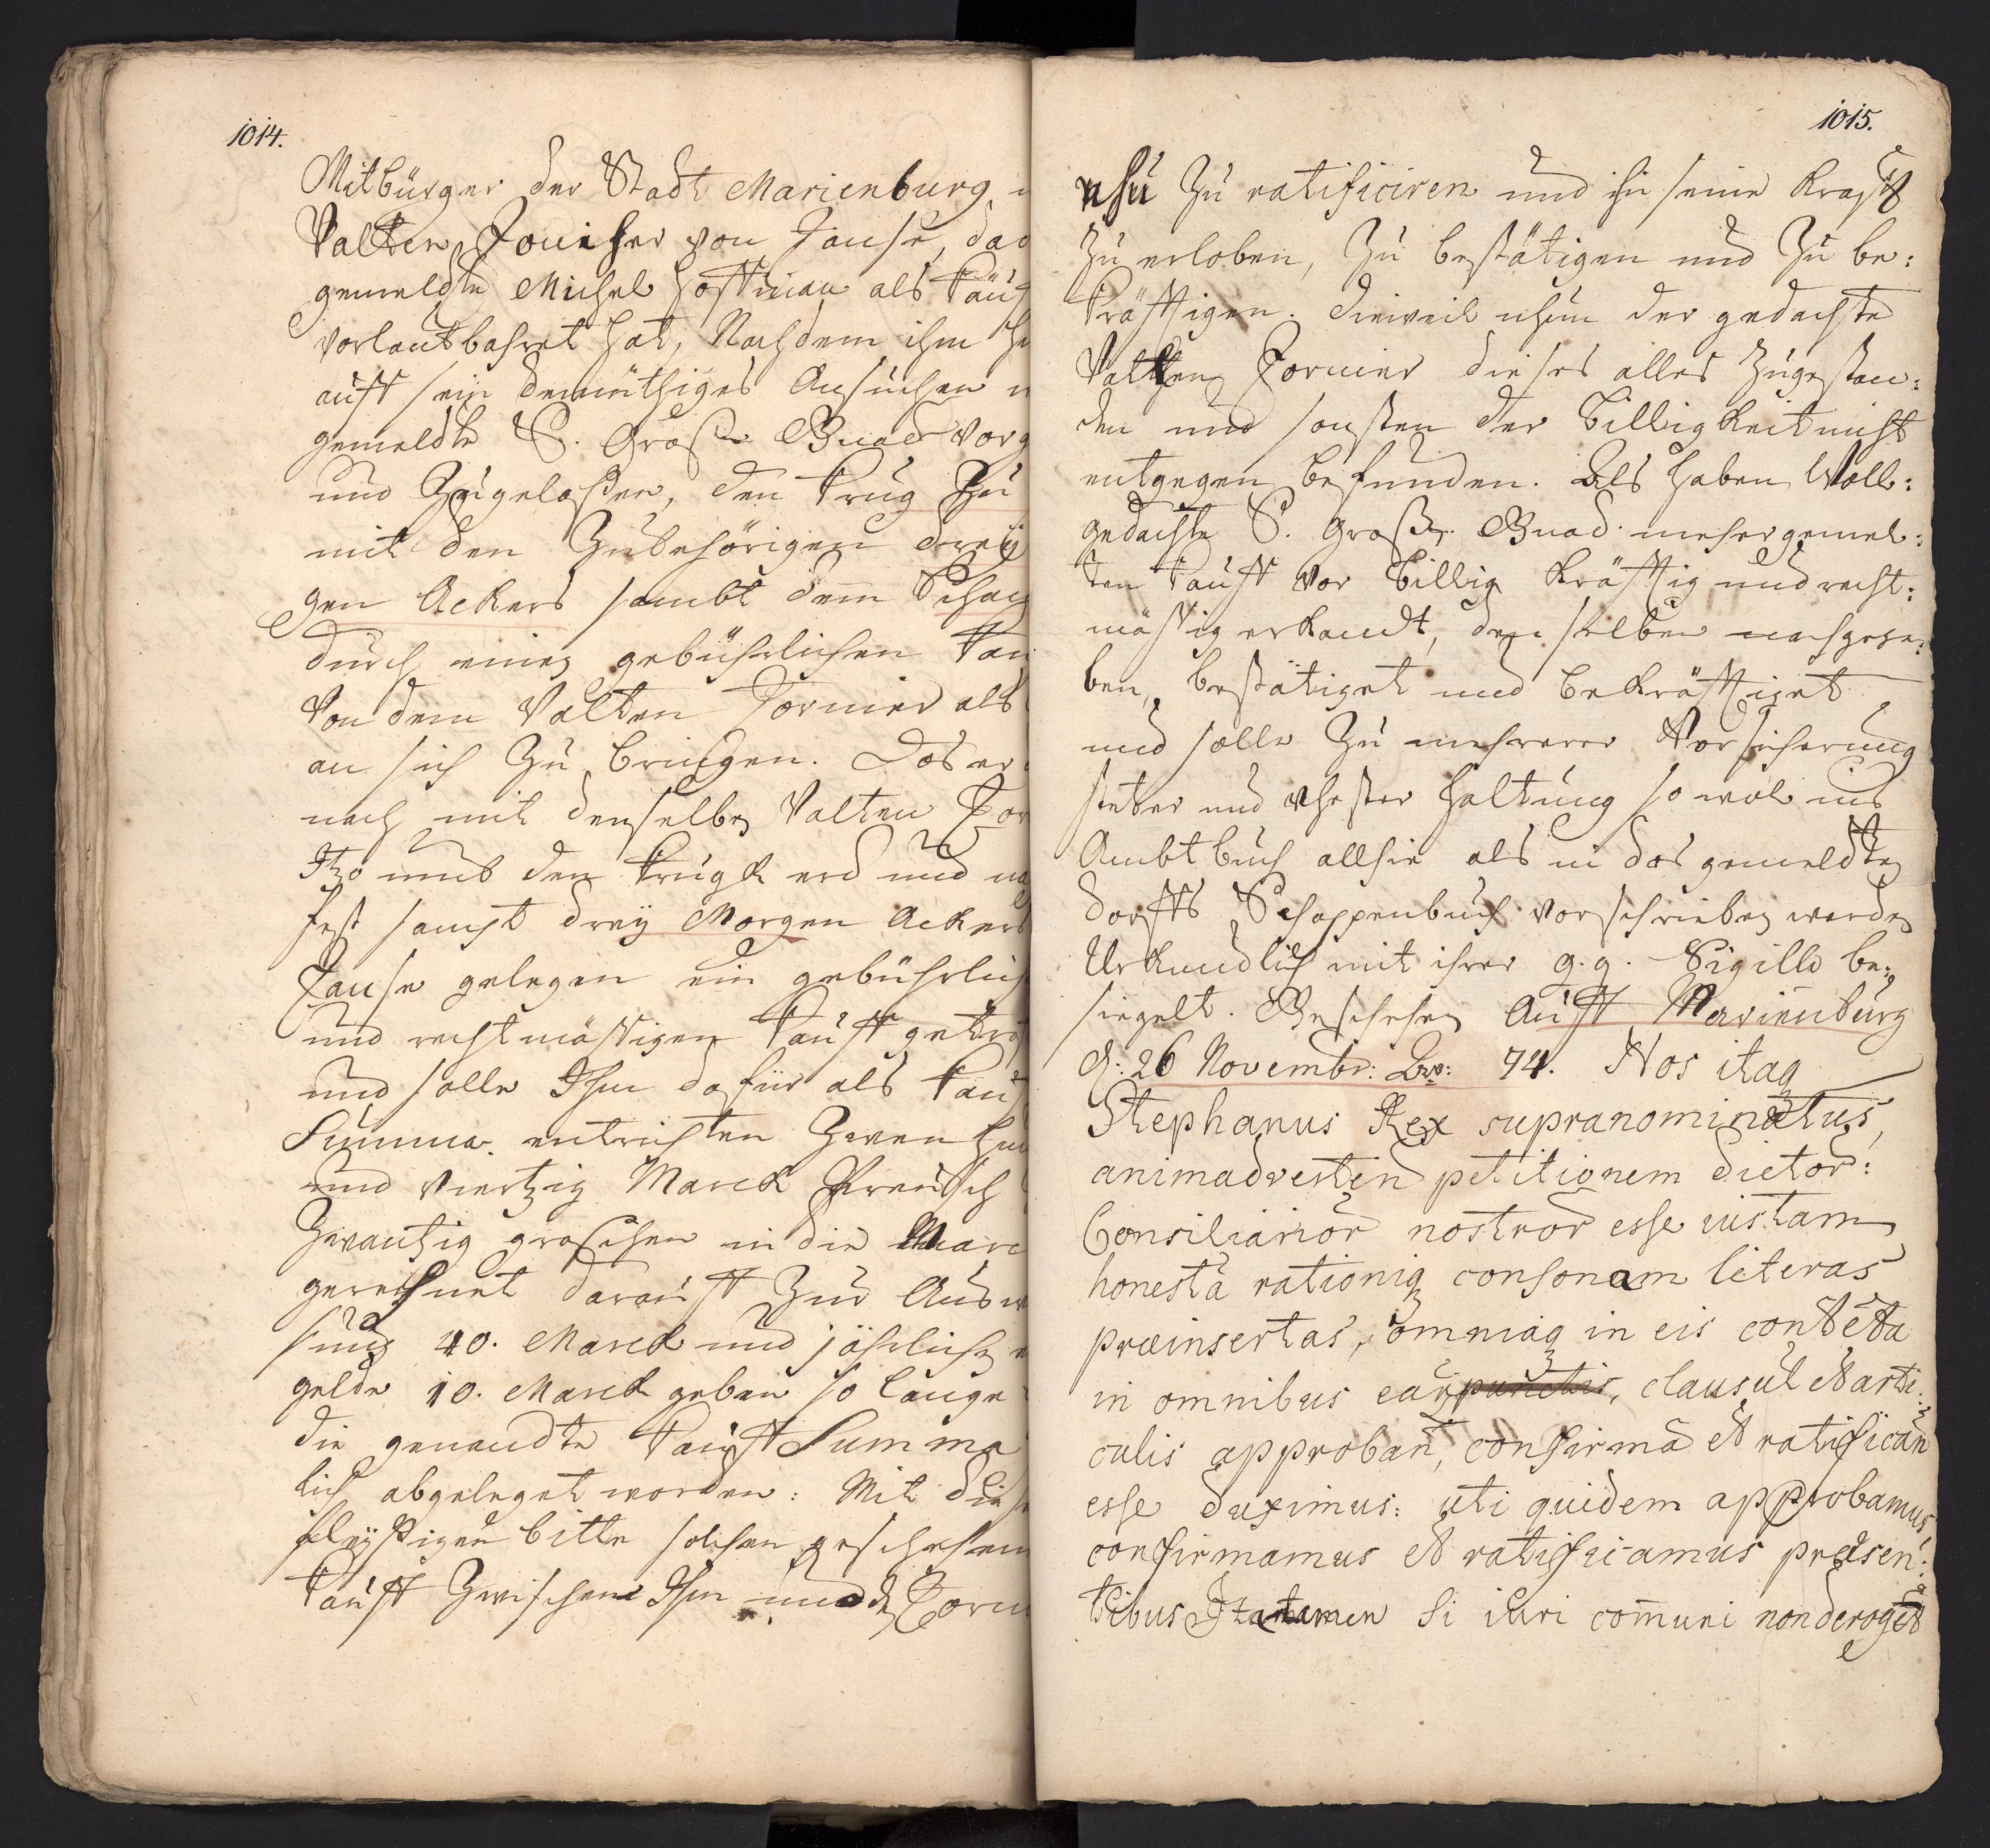 1014.
Mitbürger der Stadt Marienburg
Valten von Tanse, das
gemeldte Michel Hoffman als
vorlautbahret hat, Nachdem ihm
auff sein demüthiges Ansuchen
gemeldte S. Große Gnad
und Zugelaßen, den Krug Zu
mit den Zubehörigen drey
gen Ackers sambt dem
durch einen gebührlichen
Von dem Valten Tornier als
an sich Zu bringen. Das er
nach mit denselben Valten
Itzo umb den und
sampt drey Morgen Ackers
Tanse gelegen ein gebührlich
und rechtmässigen Kauff
und solle Ihm dafür als
Summa entrichten Zwen
und viertzig Marck Preusch
Zwantzig groschen in die Marc
gerechnet darauff Zur
40. Marck und jährlichen
gelde 10. Marck geben so lange
die genandte Kauff Summa
lich abgeleget worden: Mit
fleyssigen bitte solchen geschehenen
Kauff Zwischen Ihm und
1015.
Zu ratificiren und in seine Krafft
Zu erloben, Zu bestätigen und Zu be:
kräfftigen. Dieweil nhun der gedachte
Valten Tornier dieses alles Zugestan:
den und sonsten der Billigkeit nicht
entgegen befunden. Als haben Woll:
gedachte S. Große Gnad mehergemel:
ten Kauff vor billig kräfftig und recht:
mässig erkandt, denselben nachgege:
ben, bestätiget und bekräfftiget
und solle Zu mehrerer Vorsicherung
steter und vhester Haltung so wol ins
Ambtbuch allhie als in das gemeldten
Dorffs Schoppenbuch vorschrieben werden
Urkundlich mit ihrer g. g. Sigillo be:
siegelt. Geschehen Auff Marienburg
d. 26 Novembr: 74. Nos itaq
Stephanus Rex supranominatus,
animadverten petitionem dictor:
Consiliarior nostror esse iustam
honesta rationiq consonam literas
præinsertas, omniaq in eis conteta
in omnibus ear punctis, clausul et arti:
culis approban, confirma et ratifican
esse duximus: uti quidem approbamus
confirmamus et ratificamus præsen:
tibus Ita tamen si iuri comuni non deroget